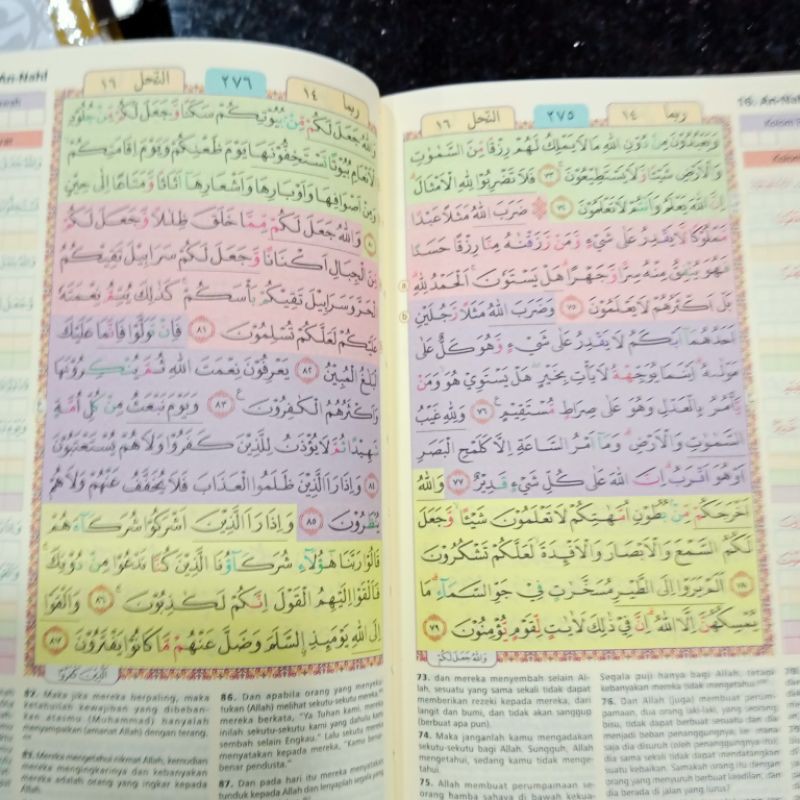 ربما ١٤
٢٧٥
النحل ١٦
16. An-Na
وَيَعْبُدُوْنَ مِنْ دُوْنِ اللّٰهِ مَا لَا يَمْلِكُ لَهُمْ رِزْقًا مِّنَ السَّمٰوٰتِ
وَالْاَرْضِ شَيْـًٔا وَّلَا يَسْتَطِيْعُوْنَ ۚ ٧٣ فَلَا تَضْرِبُوْا لِلّٰهِ الْاَمْثَالَ ۗ
اِنَّ اللّٰهَ يَعْلَمُ وَاَنْتُمْ لَا تَعْلَمُوْنَ ٧٤ ۞ ضَرَبَ اللّٰهُ مَثَلًا عَبْدًا
مَّمْلُوْكًا لَّا يَقْدِرُ عَلٰى شَيْءٍ وَّمَنْ رَّزَقْنٰهُ مِنَّا رِزْقًا حَسَنًا
فَهُوَ يُنْفِقُ مِنْهُ سِرًّا وَّجَهْرًا ۗ هَلْ يَسْتَوٗنَ ۗ اَلْحَمْدُ لِلّٰهِ ۗ
بَلْ اَكْثَرُهُمْ لَا يَعْلَمُوْنَ ٧٥ وَضَرَبَ اللّٰهُ مَثَلًا رَّجُلَيْنِ
اَحَدُهُمَآ اَبْكَمُ لَا يَقْدِرُ عَلٰى شَيْءٍ وَّهُوَ كَلٌّ عَلٰى
مَوْلٰىهُ ۗ اَيْنَمَا يُوَجِّهْهُّ لَا يَأْتِ بِخَيْرٍ ۖ هَلْ يَسْتَوِيْ هُوَ وَمَنْ
يَّأْمُرُ بِالْعَدْلِ وَهُوَ عَلٰى صِرَاطٍ مُّسْتَقِيْمٍ ࣖ ٧٦ وَلِلّٰهِ غَيْبُ
السَّمٰوٰتِ وَالْاَرْضِ ۗ وَمَآ اَمْرُ السَّاعَةِ اِلَّا كَلَمْحِ الْبَصَرِ
اَوْ هُوَ اَقْرَبُ ۗ اِنَّ اللّٰهَ عَلٰى كُلِّ شَيْءٍ قَدِيْرٌ ٧٧ وَاللّٰهُ
اَخْرَجَكُمْ مِّنْۢ بُطُوْنِ اُمَّهٰتِكُمْ لَا تَعْلَمُوْنَ شَيْـًٔا ۙ وَّجَعَلَ
لَكُمُ السَّمْعَ وَالْاَبْصَارَ وَالْاَفْـِٕدَةَ ۙ لَعَلَّكُمْ تَشْكُرُوْنَ
٧٨ اَلَمْ يَرَوْا اِلَى الطَّيْرِ مُسَخَّرٰتٍ فِيْ جَوِّ السَّمَاۤءِ ۗ مَا
يُمْسِكُهُنَّ اِلَّا اللّٰهُ ۗ اِنَّ فِيْ ذٰلِكَ لَاٰيٰتٍ لِّقَوْمٍ يُّؤْمِنُوْنَ ٧٩
وَاللّٰهُ جَعَلَ لَكُمْ
73. dan mereka menyembah selain Al-
lah, sesuatu yang sama sekali tidak dapat
memberikan rezeki kepada mereka, dari
langit dan bumi, dan tidak akan sanggup
(berbuat apa pun).
74. Maka janganlah kamu mengadakan
sekutu-sekutu bagi Allah. Sungguh, Allah
mengetahui, sedang kamu tidak menge-
tahui.
75. Allah membuat perumpamaan se-
orang hamba sahaya di bawah kekua-
Segala puji hanya bagi Allah, tetapi
kebanyakan mereka tidak mengetahui.
76. Dan Allah (juga) membuat perum-
pamaan, dua orang laki-laki, yang seorang
bisu, tidak dapat berbuat sesuatu dan dia
menjadi beban penanggungnya, ke mana
saja dia disuruh (oleh penanggungnya itu),
dia sama sekali tidak dapat mendatangkan
suatu kebaikan. Samakah orang itu dengan
orang yang menyuruh berbuat keadilan, dan
dia berada di jalan yang lurus?
ربما ١٤
٢٧٦
النحل ١٦
An-Nahl
وَاللّٰهُ جَعَلَ لَكُمْ مِّنْۢ بُيُوْتِكُمْ سَكَنًا وَّجَعَلَ لَكُمْ مِّنْ جُلُوْدِ
الْاَنْعَامِ بُيُوْتًا تَسْتَخِفُّوْنَهَا يَوْمَ ظَعْنِكُمْ وَيَوْمَ اِقَامَتِكُمْ ۙ
وَمِنْ اَصْوَافِهَا وَاَوْبَارِهَا وَاَشْعَارِهَآ اَثَاثًا وَّمَتَاعًا اِلٰى حِيْنٍ
٨٠ وَاللّٰهُ جَعَلَ لَكُمْ مِّمَّا خَلَقَ ظِلٰلًا وَّجَعَلَ لَكُمْ
مِّنَ الْجِبَالِ اَكْنَانًا وَّجَعَلَ لَكُمْ سَرَابِيْلَ تَقِيْكُمُ
الْحَرَّ وَسَرَابِيْلَ تَقِيْكُمْ بَأْسَكُمْ ۗ كَذٰلِكَ يُتِمُّ نِعْمَتَهٗ
عَلَيْكُمْ لَعَلَّكُمْ تُسْلِمُوْنَ ٨١ فَاِنْ تَوَلَّوْا فَاِنَّمَا عَلَيْكَ
الْبَلٰغُ الْمُبِيْنُ ٨٢ يَعْرِفُوْنَ نِعْمَتَ اللّٰهِ ثُمَّ يُنْكِرُوْنَهَا
وَاَكْثَرُهُمُ الْكٰفِرُوْنَ ࣖ ٨٣ وَيَوْمَ نَبْعَثُ مِنْ كُلِّ اُمَّةٍ
شَهِيْدًا ثُمَّ لَا يُؤْذَنُ لِلَّذِيْنَ كَفَرُوْا وَلَا هُمْ يُسْتَعْتَبُوْنَ
٨٤ وَاِذَا رَاَ الَّذِيْنَ ظَلَمُوا الْعَذَابَ فَلَا يُخَفَّفُ عَنْهُمْ وَلَا هُمْ
يُنْظَرُوْنَ ٨٥ وَاِذَا رَاَ الَّذِيْنَ اَشْرَكُوْا شُرَكَاۤءَهُمْ
قَالُوْا رَبَّنَا هٰٓؤُلَاۤءِ شُرَكَاۤؤُنَا الَّذِيْنَ كُنَّا نَدْعُوْا مِنْ دُوْنِكَ ۚ
فَاَلْقَوْا اِلَيْهِمُ الْقَوْلَ اِنَّكُمْ لَكٰذِبُوْنَ ۚ ٨٦ وَاَلْقَوْا
اِلَى اللّٰهِ يَوْمَىِٕذِ ِۨالسَّلَمَ وَضَلَّ عَنْهُمْ مَّا كَانُوْا يَفْتَرُوْنَ ٨٧
اَلَّذِيْنَ كَفَرُوْا
82. Maka jika mereka berpaling, maka
ketahuilah kewajiban yang dibeban-
kan atasmu (Muhammad) hanyalah
menyampaikan (amanat Allah) dengan terang.
83. Mereka mengetahui nikmat Allah, kemudian
mereka mengingkarinya dan kebanyakan
mereka adalah orang yang ingkar kepada
Allah.
86. Dan apabila orang yang menyeku-
tukan (Allah) melihat sekutu-sekutu mereka,
mereka berkata, "Ya Tuhan kami, mereka
inilah sekutu-sekutu kami yang dahulu kami
sembah selain Engkau." Lalu sekutu mereka
menyatakan kepada mereka, "Kamu benar-
benar pendusta."
87. Dan pada hari itu mereka menyatakan
tunduk kepada Allah dan lenyaplah segala